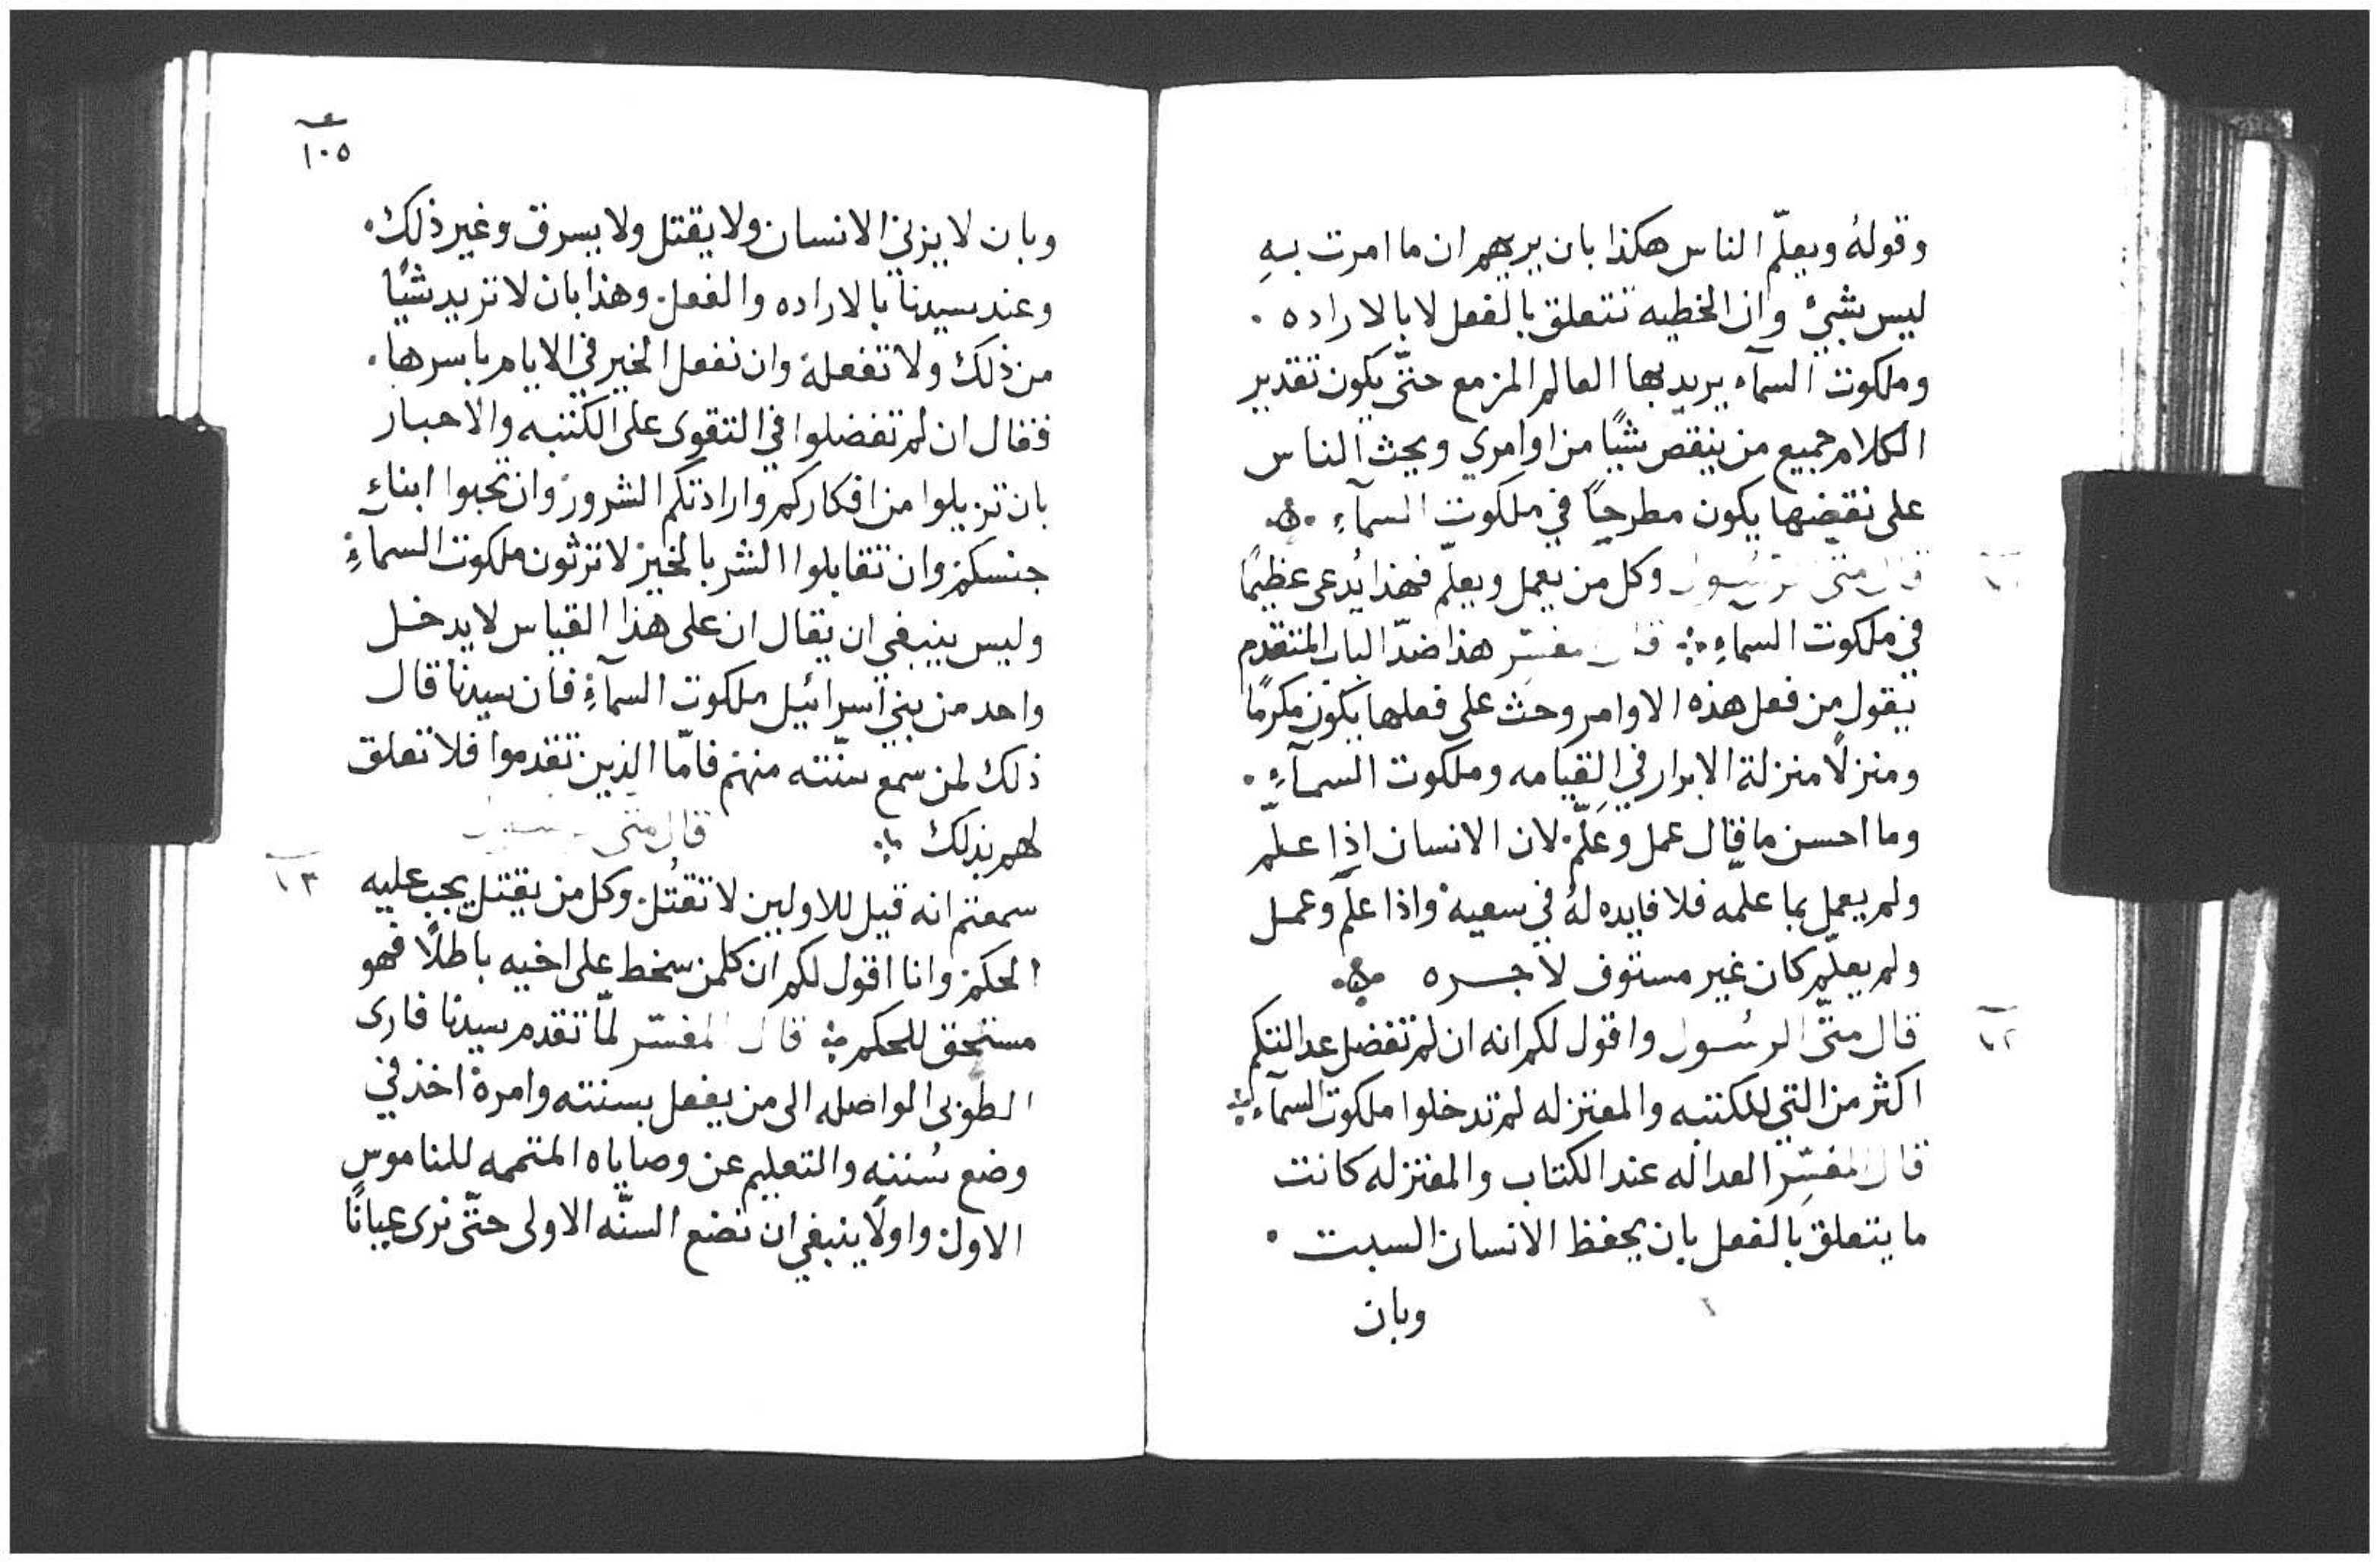 وقولهُ ويعلّم الناس هكذا بان يريهم ان ما امرت بهِ
ليس بشيٍ وان الخطيه تتعلق بالفعل لا بالاراده .
وملكوت السمآء يريد بها العالم المزمع حتّى يكون تقدير
الكلام جميع من ينقص شيًا من اوامري ويحث الناس
على نقضها يكون مطرحًا في ملكوت السمآءِ .
قال متى الرسول وكل من يعمل ويعلّم فهذا يُدعى عظيمًا
في ملكوت السمآءِ قال مفسّر هذا ضدّ الباب المتقدم
يقول من فعل هذه الاوامر وحث على فعلها يكون مكرمًا
ومنزلًا منزلة الابرار في القيامه وملكوت السمآءِ .
وما احسن ما قال عمل وعَلّم. لان الانسان اذا علّم
ولم يعمل بما علمه فلا فايده لهُ في سعيهْ واذا علم وعمل
ولم يعلّم كان غير مستوف لاجره
١٢
قال متّى الرسُول واقول لكم انه ان لم تفضل عدالتكم
اكثر من التي للكتبه والمعتزله لم تدخلوا ملكوت السمآء
قال المفسّر العداله عند الكتاب والمعتزله كانت
ما يتعلق بالفعل بان يحفظ الانسان السبت .
وبان
١٠٥
وبان لا يزني الانسان ولا يقتل ولا يسرق وغير ذلك.
وعند سيدنا بالاراده والفعل. وهذا بان لا تريد شيًا
من ذلك ولا تفعلهُ وان تفعل الخير في الايام باسرها.
فقال ان لم تفضلوا في التقوى على الكتبه والاحبار
بان تزيلوا من افكاركم وارادتكم الشرور وان تحبوا ابناء
جنسكم وان تقابلوا الشر بالخير لا ترثون ملكوت السمآءِ
وليس ينبغي ان يقال ان على هذا القياس لا يدخل
واحد من بني اسرائيل ملكوت السمآءِ فان سيدنا قال
ذلك لمن سمع سنّته منهم فامّا الذين تقدموا فلا تعلق
لهم بذلك قال متى
١٣
سمعتم انه قيل للاولين لا تقتُل. وكل من يقتل يجب عليه
الحكم وانا اقول لكم ان كلمن سخط على اخيه باطلًا فهو
مستحق للحكم قال المفسّر لمّا تقدم سيدنا فارى
الطوبى الواصله الى من يفعل بسنته وامرهْ اخذ في
وضع سُننهِ والتعليم عن وصاياه المتممه للناموس
الاول واولًا ينبغي ان نضع السنّه الاولى حتّى نرى عيانًا